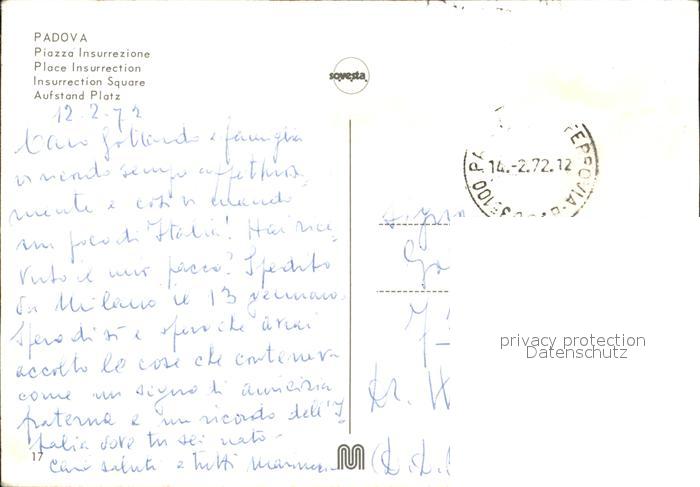 PADOVA
Piazza Insurrezione
Place Insurrection
Insurrection Square
Aufstand Platz
sovesta
12.2.72
Caro Gottardo e famiglia
vi ricordo sempre affettuosa
mente e così vi mando
un poco di Italia! Hai rice_
vuto il mio pacco? Spedito
da Milano il 13 gennaio.
Spero di sì e spero che avrai
accolto le cose che conteneva
come un segno di amicizia
fraterna e un ricordo dell'I
talia dove tu sei nato.
Cari saluti a tutti
17
35100 PA
FERROVIA
14.-2.72.12
Kr. H
(D.D.
privacy protection
Datenschutz